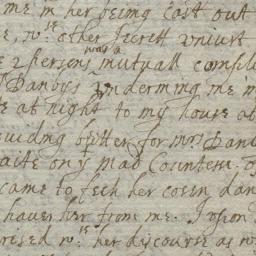 me in her being cast out
e, wth other secrett unjust
was a
2 persons mutuall compli
Danbys undermining me
e at night to my house at
viding bitter for Mrs Danb
aite on ye Mad Countess. o
came to fech her cosen dan
haver her from me. I
rised wth her discourse as w